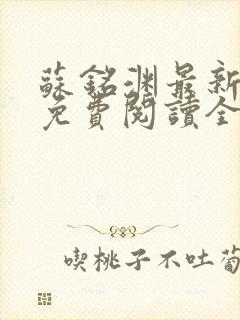 蘇銘淵最新
免費閱讀全
喫桃子不吐葡